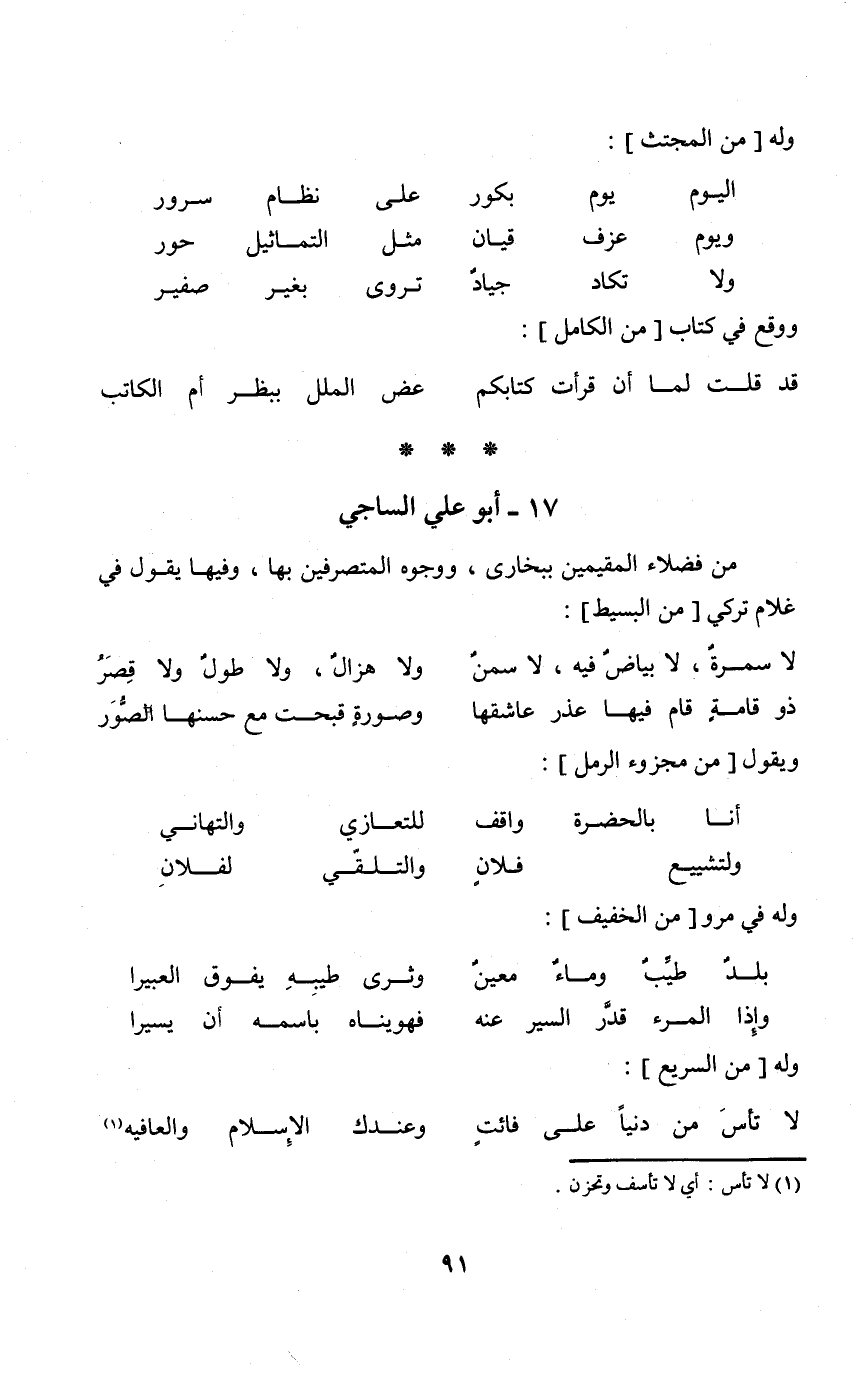 وله [ من المجتث ] :
اليوم يوم بكور على نظام سرور
ويوم عزف قيان مثل التماثيل حور
ولا تكاد جيادٌ تروى بغير صفير
ووقع في كتاب [ من الكامل ] :
قد قلت لما أن قرأت كتابكم عض الملل ببظر أم الكاتب
* * *
١٧ - أبو علي الساجي
من فضلاء المقيمين ببخارى ، ووجوه المتصرفين بها ، وفيها يقول في
غلام تركي [ من البسيط ] :
لا سمرةٌ ، لا بياضٌ فيه ، لا سمنٌ ولا هزالٌ ، ولا طولٌ ولا قِصَرُ
ذو قامةٍ قام فيها عذر عاشقها وصورةٍ قبحت مع حسنها الصُّوَر
ويقول [ من مجزوء الرمل ] :
أنا بالحضرة واقف للتعازي والتهاني
ولتشييع فلانٍ والتلقّي لفلانِ
وله في مرو [ من الخفيف ] :
بلدٌ طيِّبٌ وماءٌ معينٌ وثرى طيبِهِ يفوق العبيرا
وإِذا المرء قدَّر السير عنه فهويناه باسمه أن يسيرا
وله [ من السريع ] :
لا تأسَ من دنياً على فائتٍ وعندك الإِسلام والعافيه(١)
(١) لا تأس : أي لا تأسف وتحزن .
٩١